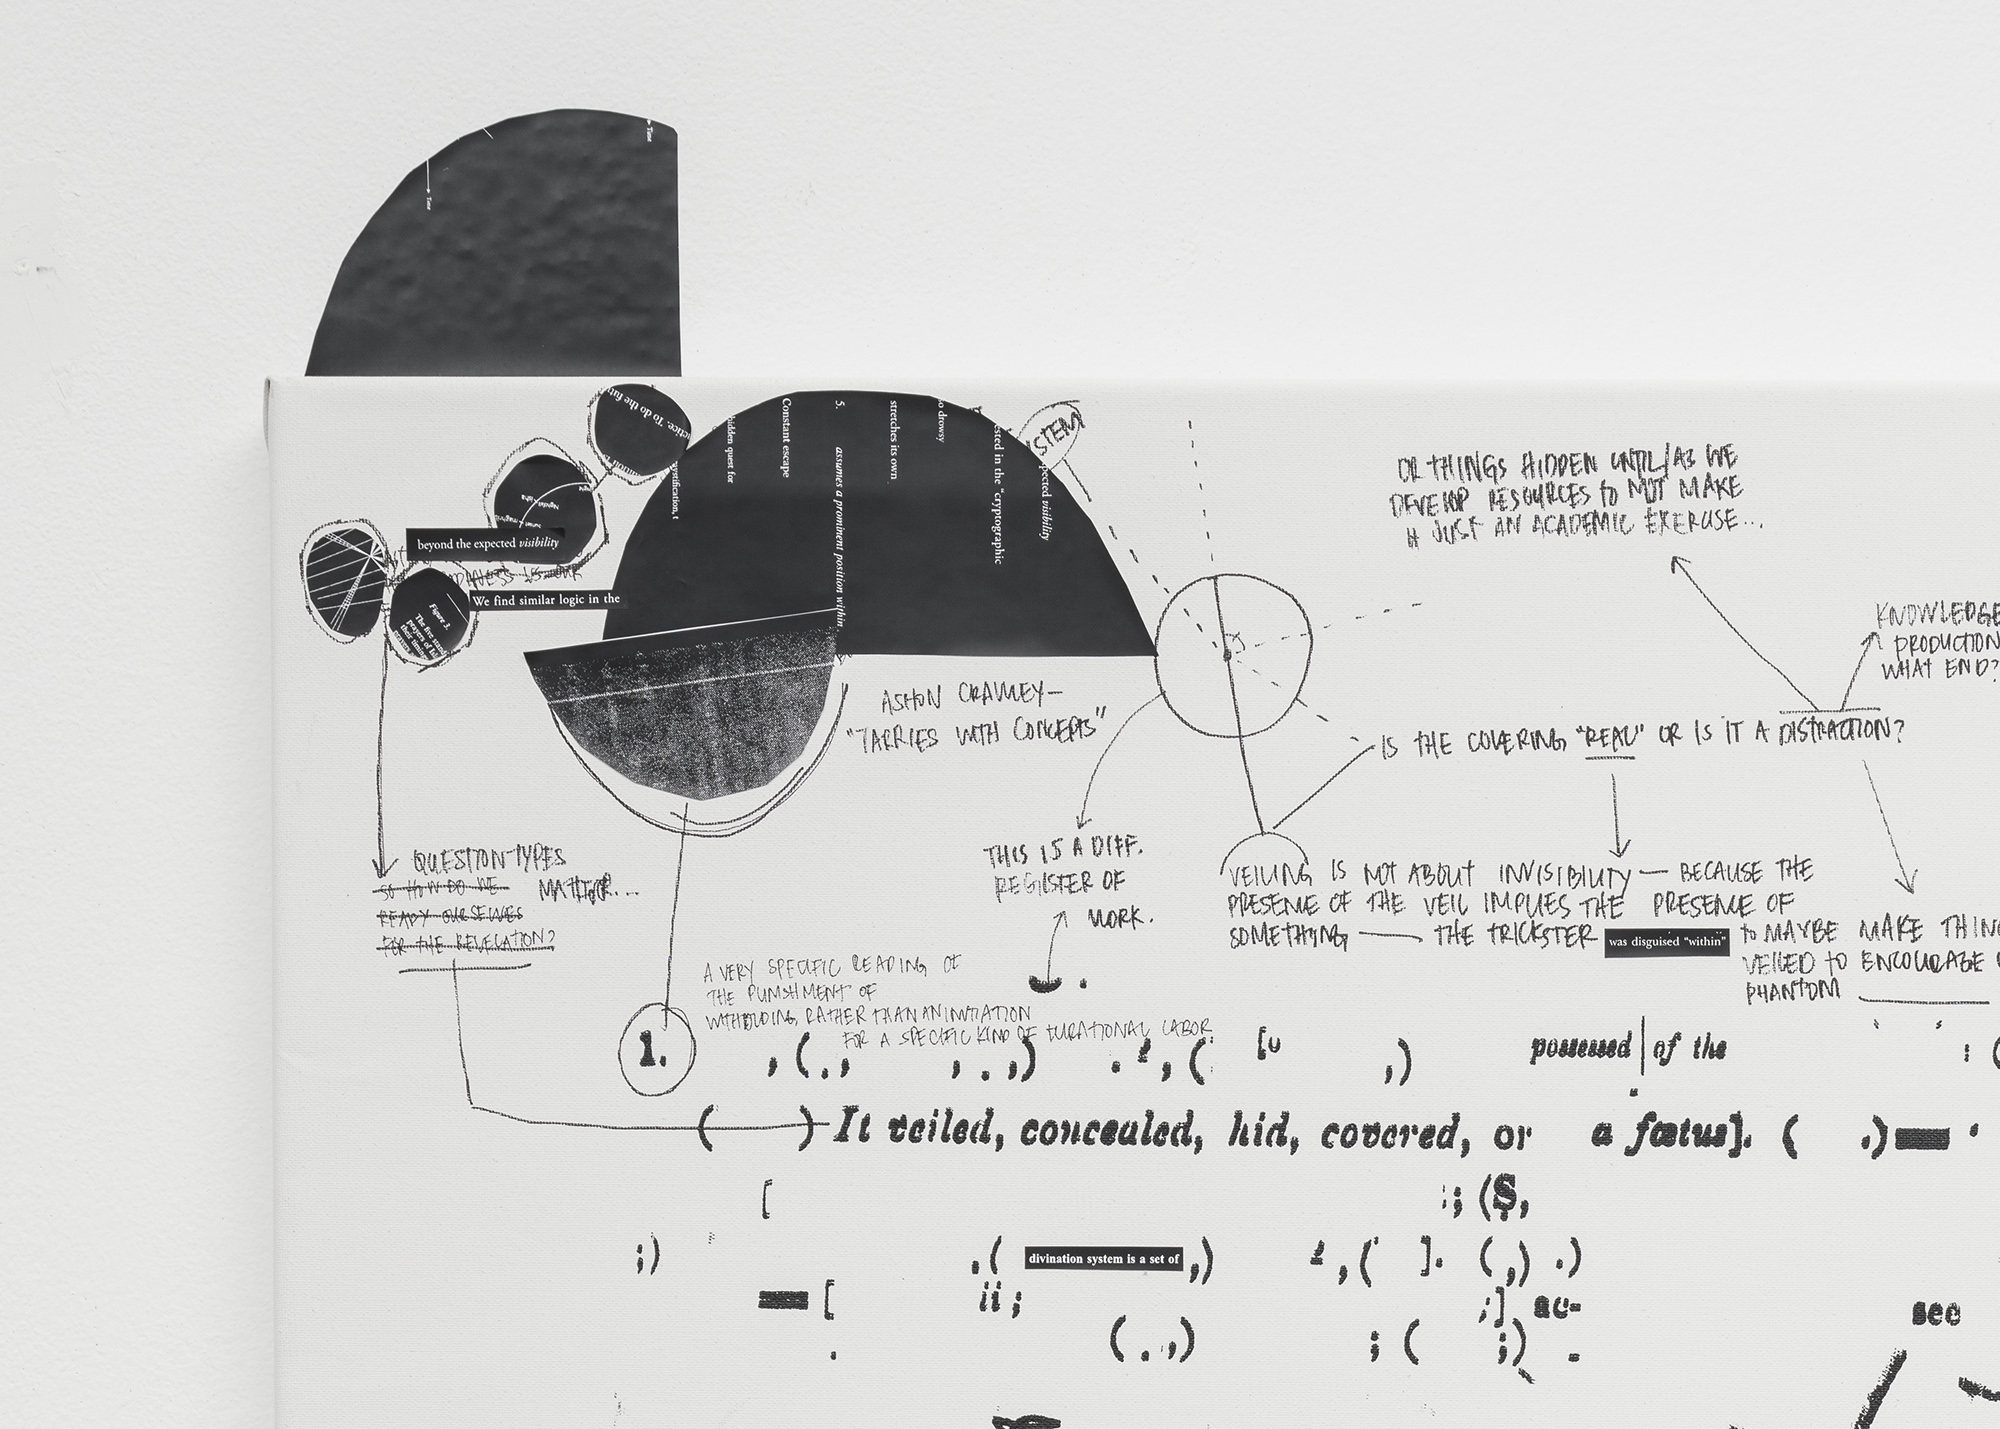 Time
Time
ctice. To do the fut
beyond the expected visibility
We find similar logic in the
Figure 3.
The five
prayers of
their
hidden quest for
Constant escape
5.
assumes a prominent position within
stretches its own
so drowsy
ested in the "cryptographic
pected visibility
STEM
OR THINGS HIDDEN UNTIL/AS WE
DEVELOP RESOURCES to NOT MAKE
it JUST AN ACADEMIC EXERCISE...
KNOWLEDGE
PRODUCTION
WHAT END?
ASHON CRAWLEY—
"TARRIES WITH CONCEPTS"
IS THE COVERING "REAL" OR IS IT A DISTRACTION?
QUESTION TYPES
MATTER...
SO HOW DO WE
READY OURSELVES
FOR THE REVELATION?
THIS IS A DIFF.
REGISTER OF
WORK.
VEILING IS NOT ABOUT INVISIBILITY — BECAUSE THE
PRESENCE OF THE VEIL IMPLIES THE PRESENCE OF
SOMETHING — THE TRICKSTER was disguised "within"
to MAYBE MAKE THIN
VEILED to ENCOURAGE
PHANTOM
A VERY SPECIFIC READING OF
THE PUNISHMENT OF
WITHHOLDING, RATHER THAN AN INITIATION
FOR A SPECIFIC KIND OF DURATIONAL LABOR
1.
, (., , . ,) . , ( [ ,) possessed of the : (
( ) It veiled, concealed, hid, covered, or a fœtus]. ( .)
[ ; (Ș,
;) .( divination system is a set of ,) , ( ]. (,) .)
[ ii ; ;] ac-
see
. (.,) ; ( ;) -